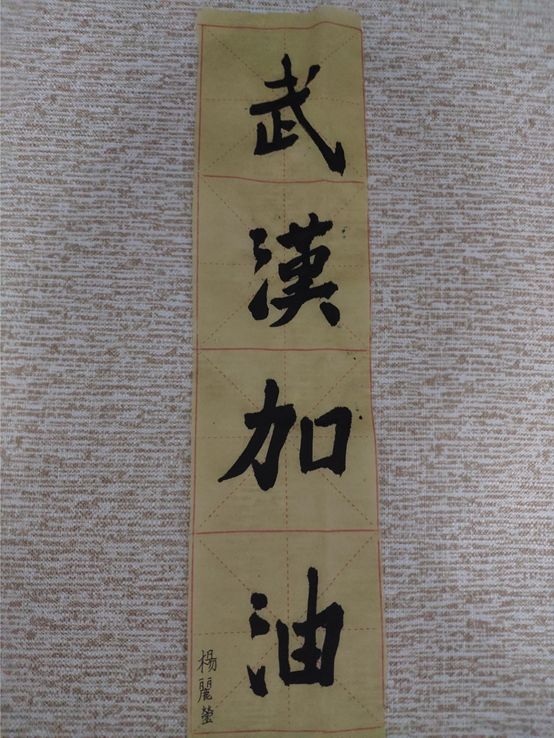 武漢加油
楊麗瑩